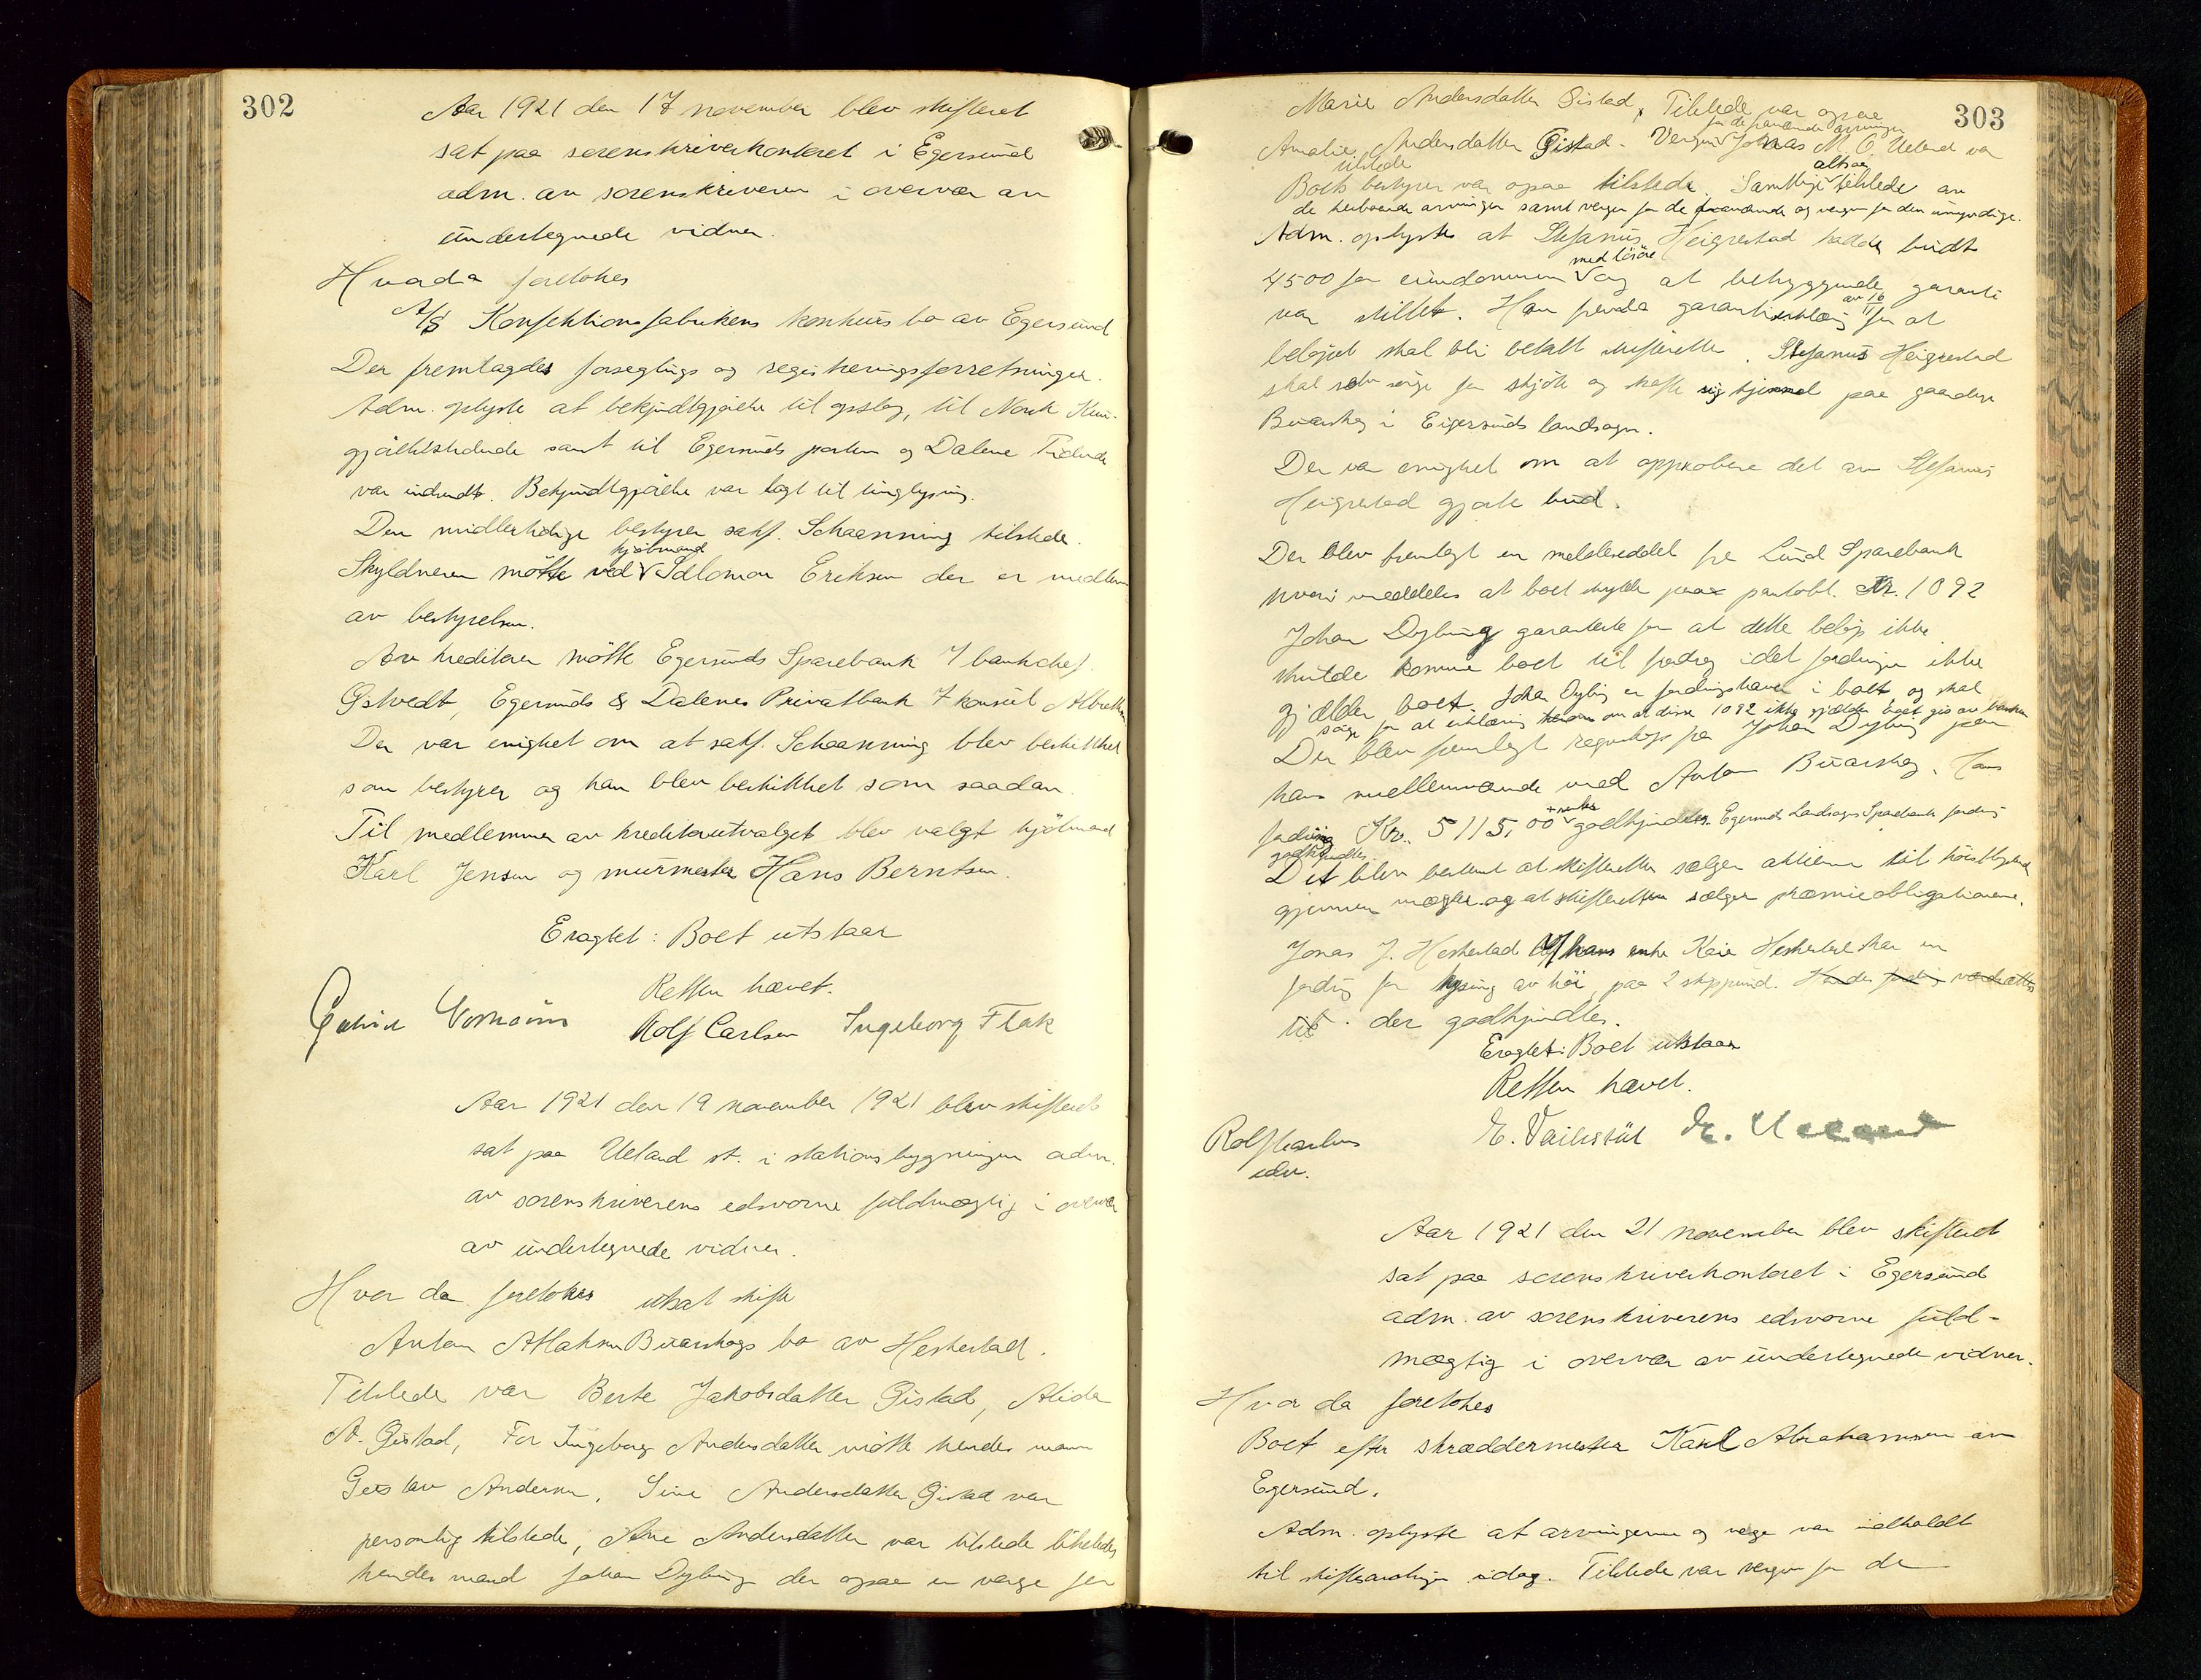 302
Aar 1921 den 17 november blev skifteret
sat paa sorenskriverkontoret i Egersund
adm. av sorenskriveren i overvær av
undertegnede vidner.
Hvorda foretokes
A/S Konfektionsfabrikens konkurs bo av Egersund
Der fremlagdes forseglings og registreringsforretninger.
Adm. oplyste at bekjendtgjørelse til opslag, til Norsk Kun-
gjørelsestidende samt til Egersunds posten og Dalene Tidende
var indsendt. Bekjendtgjørelse var lagt til tinglysning.
Den midlertidige bestyrer sakf. Schaanning tilstede.
Skyldneren møtte ved kjøbmand Salomon Eriksen der er medlem
av bestyrelsen.
Av kreditorer møtte Egersunds Sparebank v/ bankchef
Gstvedt, Egersunds & Dalenes Privatbank v/ konsul
Der var enighet om at sakf. Schaanning blev beskikket
som bestyrer og han blev beskikket som saadan.
Til medlemmer av kreditorutvalget blev valgt kjøbmand
Karl Jensen og murmester Hans Berntsen.
Eragtet: Boet utstaar
Retten hævet.
Rolf Carlsen Ingeborg Flak
Aar 1921 den 19 november 1921 blev skifteret
sat paa Ueland st. i stationsbygningen adm.
av sorenskriverens edsvorne fuldmægtig i overvær
av undertegnede vidner.
Hvor da foretokes utsat skifte
Anton Atlaksen Buarskogs bo av Heskestad.
Tilstede var Berte Jakobsdatter Gistad, Alida
A. Gistad, For Ingeborg Andersdatter møtte hendes mann
Gustav Andersen, Sine Andersdatter Gistad var
personlig tilstede, Ane Andersdatter var tilstede likeledes
hendes mand Johan Dybing der ogsaa er verge for
303
Marie Andersdatter Gistad, Tilstede var ogsaa
Amalie Andersdatter Gistad - Vergen for de fraværende arvinger Jonas M. O. Ueland var
tilstede
Boets bestyrer var ogsaa tilstede. Samtlige altsaa tilstede av
de herboende arvinger samt verger for de fraværende og vergen for den umyndige.
Adm. oplyste at Stefanus Heigrestad hadde budt
4500 for eiendommen med løsøre og at betryggende garanti
var stillet. Han hadde garantierklæring av 16/11 for at
beløpet skal bli betalt skifteretten. Stefanus Heigrestad
skal selv sørge for skjøte og skaffe sig hjemmel paa gaarden
Buarskog i Eigersunds landsogn.
Der var enighet om at approbere det av Stefanus
Heigrestad gjorte bud.
Der blev fremlagt en melsleseddel fra Lund Sparebank
hvori meddeles at boet skylder paa pantobl. Kr. 1092
Johan Dybing garanterte for at dette beløp ikke
skulde komme boet til fradrag idet fordringen ikke
gjælder boet. Johan Dybing er fordringshaver i boet og skal
sørge for at erklæring om at disse 1092 ikke gjælder boet gis av banken
Der blev fremlagt regnskap fra Johan Dybing paa
hans mellemværende med Anton Buarskog. Hans
fordring Kr. 5115,00 + renter godkjendtes. Egersunds Landsogns Sparebanks fordring
godkjendtes.
Det blev bestemt at skifteretten sælger aktierne til høistbydende
gjennem mægler og at skifteretten sælger præmieobligationene.
Jonas J. Heskestad v/ hans enke Kaia Heskestad har en
fordring for kjøring av høi paa 2 skippund.
der godkjendtes.
Eragtet: Boet utstaar
Retten hævet.
Rolf Carlsen
edsv.
Aar 1921 den 21 november blev skifteret
sat paa sorenskriverkontoret i Egersund
adm. av sorenskriverens edsvorne fuld-
mægtig i overvær av undertegnede vidner.
Hvor da foretokes
Boet efter skræddermester Karl Abrahamsen av
Egersund.
Adm. oplyste at arvingerne og verge var indkaldt
til skiftesamling idag. Tilstede var vergen for de